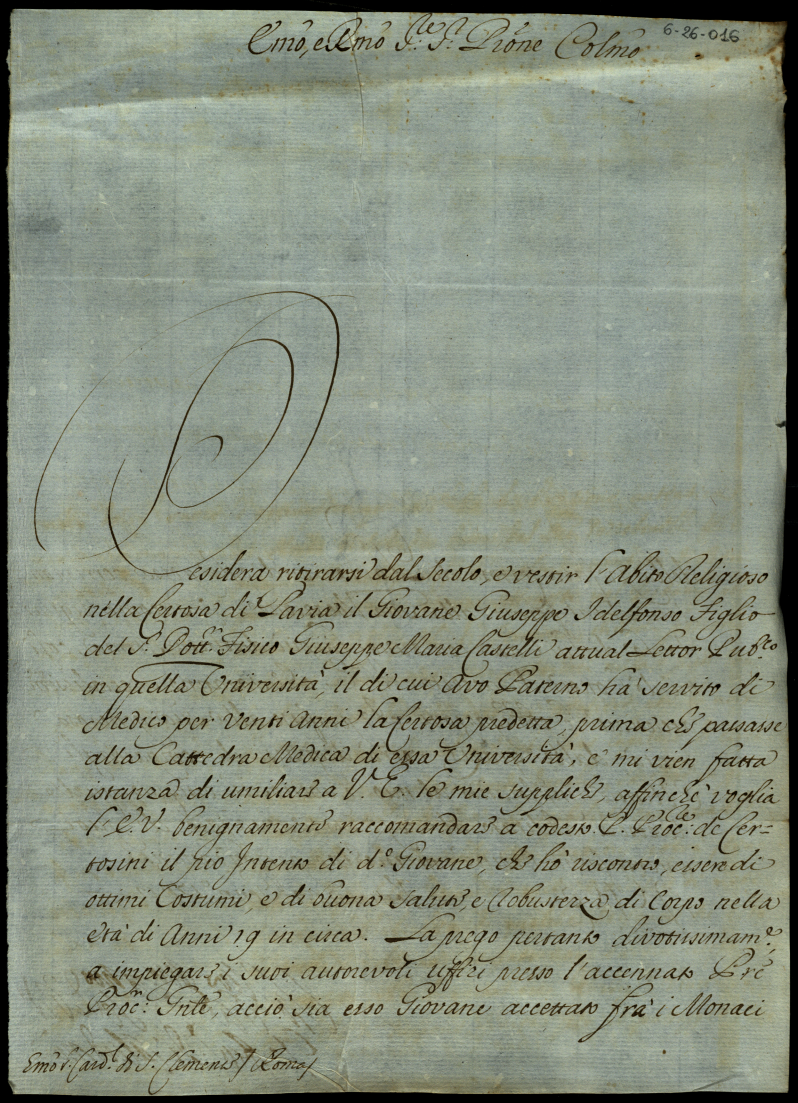 6-26-016
Emo, e Rmo Sre. Sr. Prone Colmo
Desidera ritirarsi dal Secolo, e vestir l'Abito Religioso
nella Certosa di Pavia il Giovane Giuseppe Idelfonso Figlio
del Sr. Dottr. Fisico Giuseppe Maria Castelli attual Lettor Pubco.
in quella Università, il di cui Avo Paterno hà servito di
Medico per venti Anni la Certosa predetta, prima che passasse
alla Cattedra Medica di essa Università, e mi vien fatta
istanza di umiliare a V. E. le mie suppliche, affinchè voglia
l'E. V. benignamente raccomandare a codesto P. Procle. de Cer-
tosini il pio Intento di do. Giovane, che hò riscontro, essere di
ottimi Costumi, e di buona salute, e Robustezza di Corpo nella
età di Anni 19 in circa. La prego pertanto divotissimame.
a impiegare i suoi autorevoli uffizi presso l'accennato Pre
Procr. Gnle, acciò sia esso Giovane accettato frà i Monaci
Emo Sr. Cardl. di S. Clemente / Roma /